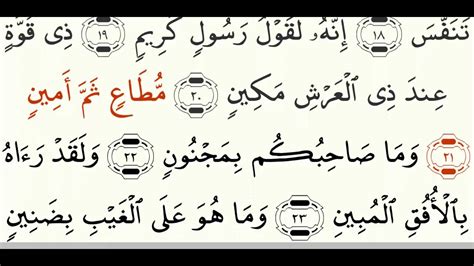 تَنَفَّسَ ١٨ إِنَّهُۥ لَقَوْلُ رَسُولٍ كَرِيمٍ ١٩ ذِى قُوَّةٍ
عِندَ ذِى ٱلْعَرْشِ مَكِينٍ ٢٠ مُّطَاعٍ ثَمَّ أَمِينٍ
٢١ وَمَا صَاحِبُكُم بِمَجْنُونٍ ٢٢ وَلَقَدْ رَءَاهُ
بِٱلْأُفُقِ ٱلْمُبِينِ ٢٣ وَمَا هُوَ عَلَى ٱلْغَيْبِ بِضَنِينٍ